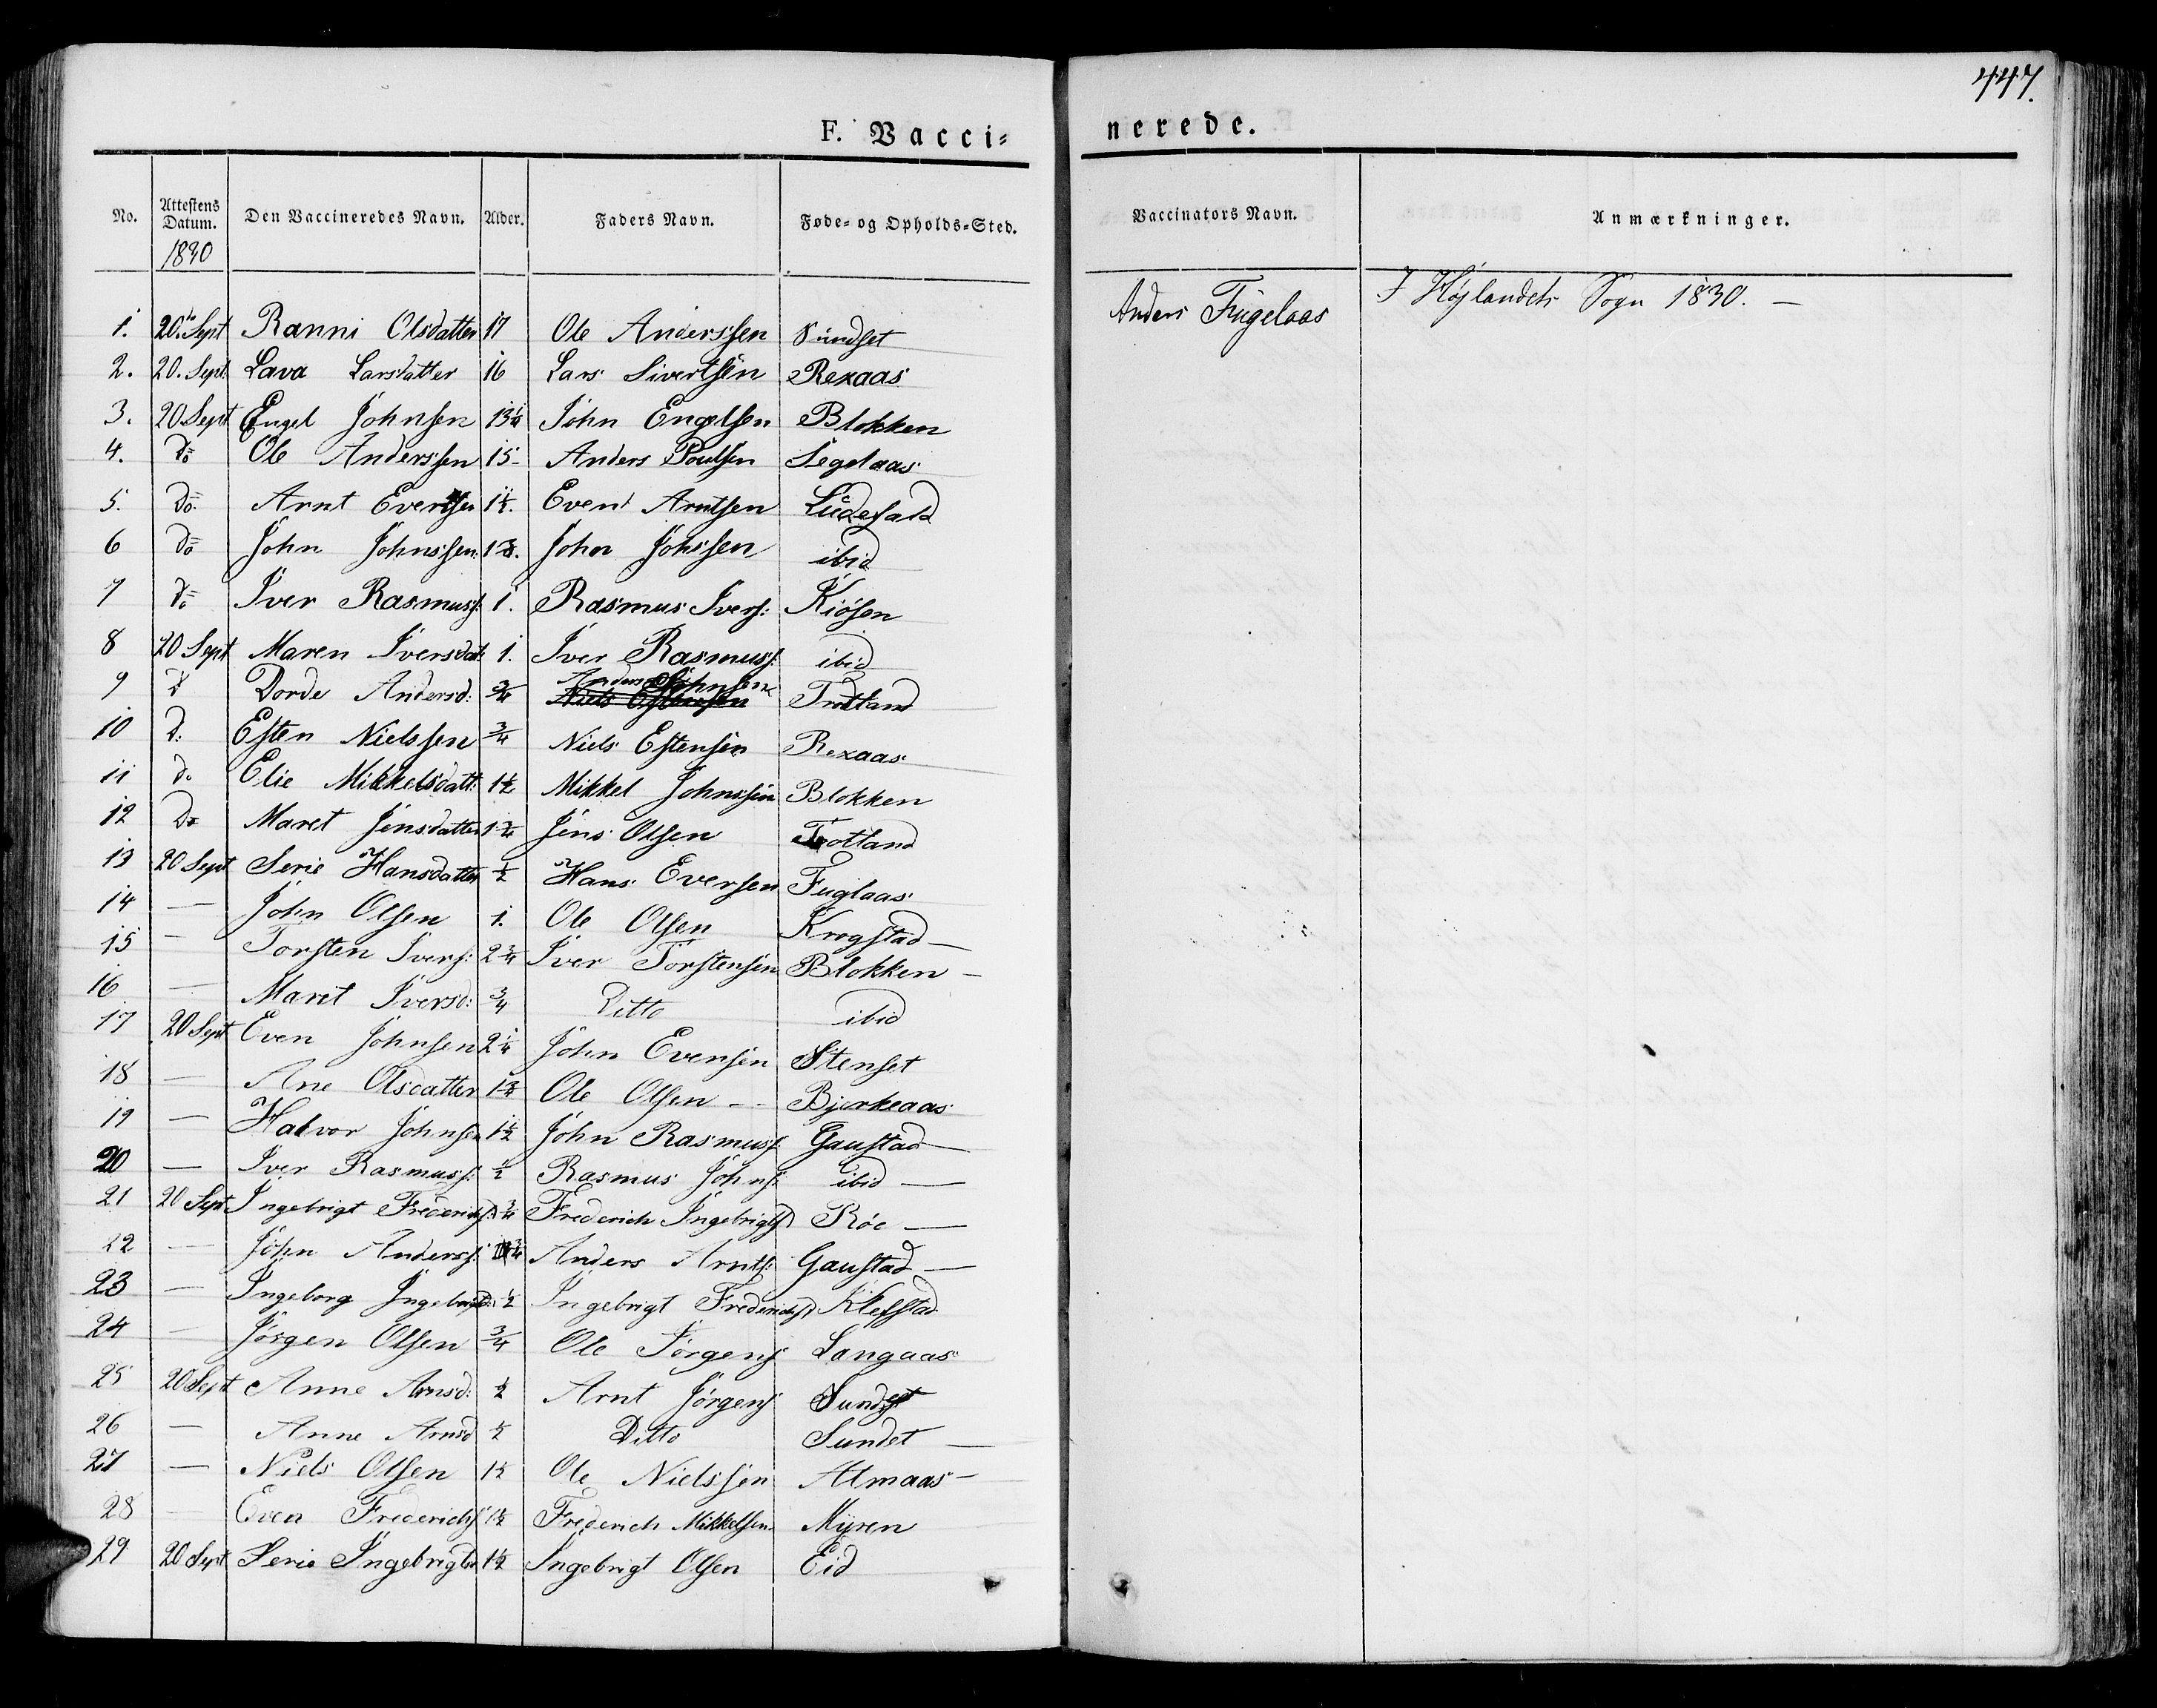 447.
F. Vacci=
nerede.
No. Attestens Datum. Den Vaccineredes Navn. Alder. Faders Navn. Føde- og Opholds-Sted. Vaccinators Navn. Anmærkninger.
1830
Anders Fugelaas I Høylandets Sogn 1830. —
1. 20. Sept Ranni Olsdatter 17 Ole Anderssen Sundset
2. 20. Sept. Lava Larsdatter 16 Lars Sivertsen Rexaas
3. 20 Sept Engel Johnsen 13¼ John Engelsen Blokken
4. do Ole Anderssen 15- Anders Poulsen Segelaas
5. do. Arnt Evensen 1½. Even Arntsen
6 do John Johnssen. 1¾. John Johssen ibid
7 do Iver Rasmuss: 1. Rasmus Ivers: Kiösen
8 20 Sept Maren Iversdat: 1. Iver Rasmuss: ibid
9 d Dorde Andersd: ¾ Anders Johnsen Trotland
10 d: Esten Nielssen ¾ Niels Estensen Rexaas
11 do Elie Mikkelsdatt: 1½ Mikkel Johnssen Blokken
12 do Maret Jensdatter 1¾ Jens Olsen Trotland
13 20 Sept Serie Hansdatter ½ Hans Eversen Fuglaas
14 — John Olsen 1. Ole Olsen Krogstad —
15 — Torsten Ivers: 2¾ Iver Torstensen Blokken —
16 — Maret Iversd: ¾ Ditto ibid
17 20 Sept Even Johnsen 2¼ John Evensen Stenset
18 — Ane Olsdatter 1¾ Ole Olsen -- Bjerkeaas
19 — Halvor Johnsen 1½ John Rasmuss Gaustad —
20 — Iver Rasmuss: ½ Rasmus Johns: ibid —
21 20 Sept Ingebrigt Frederichs: ¾ Frederich Ingebrigts Röe —
22 — John Anderss: ¾ Anders Arnts: Gaustad —
23 — Ingeborg ½ Ingebrigt Frederichs Klefstad
24 — Jörgen Olsen ¾ Ole Jörgens Langaas
25 20 Sept Anne Arnsd: ½ Arnt Jörgens Sundset
26 — Anne Arnsd ½ Ditto Sundet —
27 — Niels Olsen 1½ Ole Nielssen Almaas —
28 — Even Frederichs 1½ Frederich Mikkelsen Myren
29 20 Sept Serie Ingebrigtsd 1½ Ingebrigt Olsen Eid